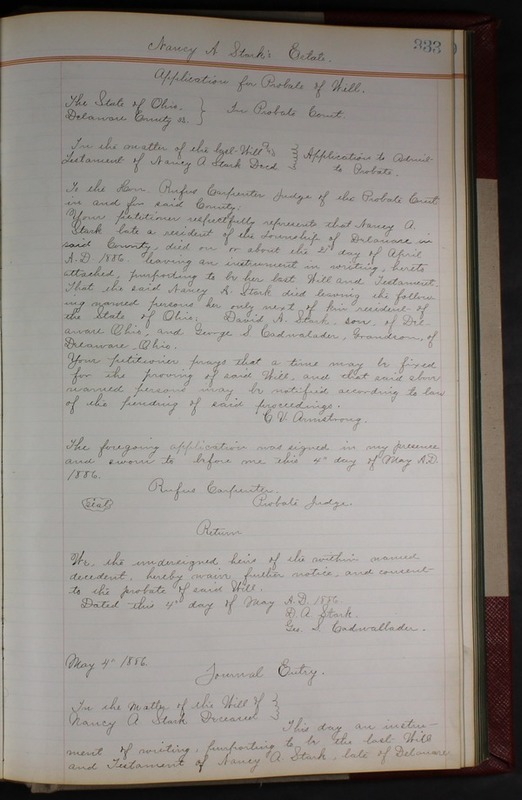 333
Nancy A Stark's Estate.
Application for Probate of Will.
The State of Ohio.
Delaware County ss. } In Probate Court.
In the matter of the last Will and
Testament of Nancy A Stark Decd } Application to Admit
Will to Probate.
To the Hon. Rufus Carpenter Judge of the Probate Court
in and for said County:
Your petitioner respectfully represents, that Nancy A.
Stark late a resident of the township of Delaware in
said County, did on or about the 2" day of April
A.D 1886. leaving an instrument in writing, hereto
attached, purporting to be her last Will and Testament.
That the said Nancy A. Stark died leaving the follow
ing named persons her only next of kin resident of
the State of Ohio: David A. Stark, son, of Del-
aware Ohio, and George S Cadwalader, Grandson, of
Delaware, Ohio.
Your petitioner prays that a time may be fixed
for the proving of said Will, and that said above
named persons may be notified according to law
of the pending of said proceedings.
C. V. Armstrong.
The foregoing application was signed in my presence
and sworn to before me this 4" day of May A.D.
1886.
Rufus Carpenter.
Seal Probate Judge.
Return
We, the undersigned heirs of the within named
decedent, hereby waive further notice, and consent
to the probate of said Will.
Dated this 4" day of May A.D. 1886
D. A. Stark.
Geo. S. Cadwallader.
May 4" 1886.
Journal Entry.
In the Matter of the Will of }
Nancy A Stark Deceased }
This day an instru-
ment of writing, purporting to be the last Will
and Testament of Nancy A. Stark, late of Delaware